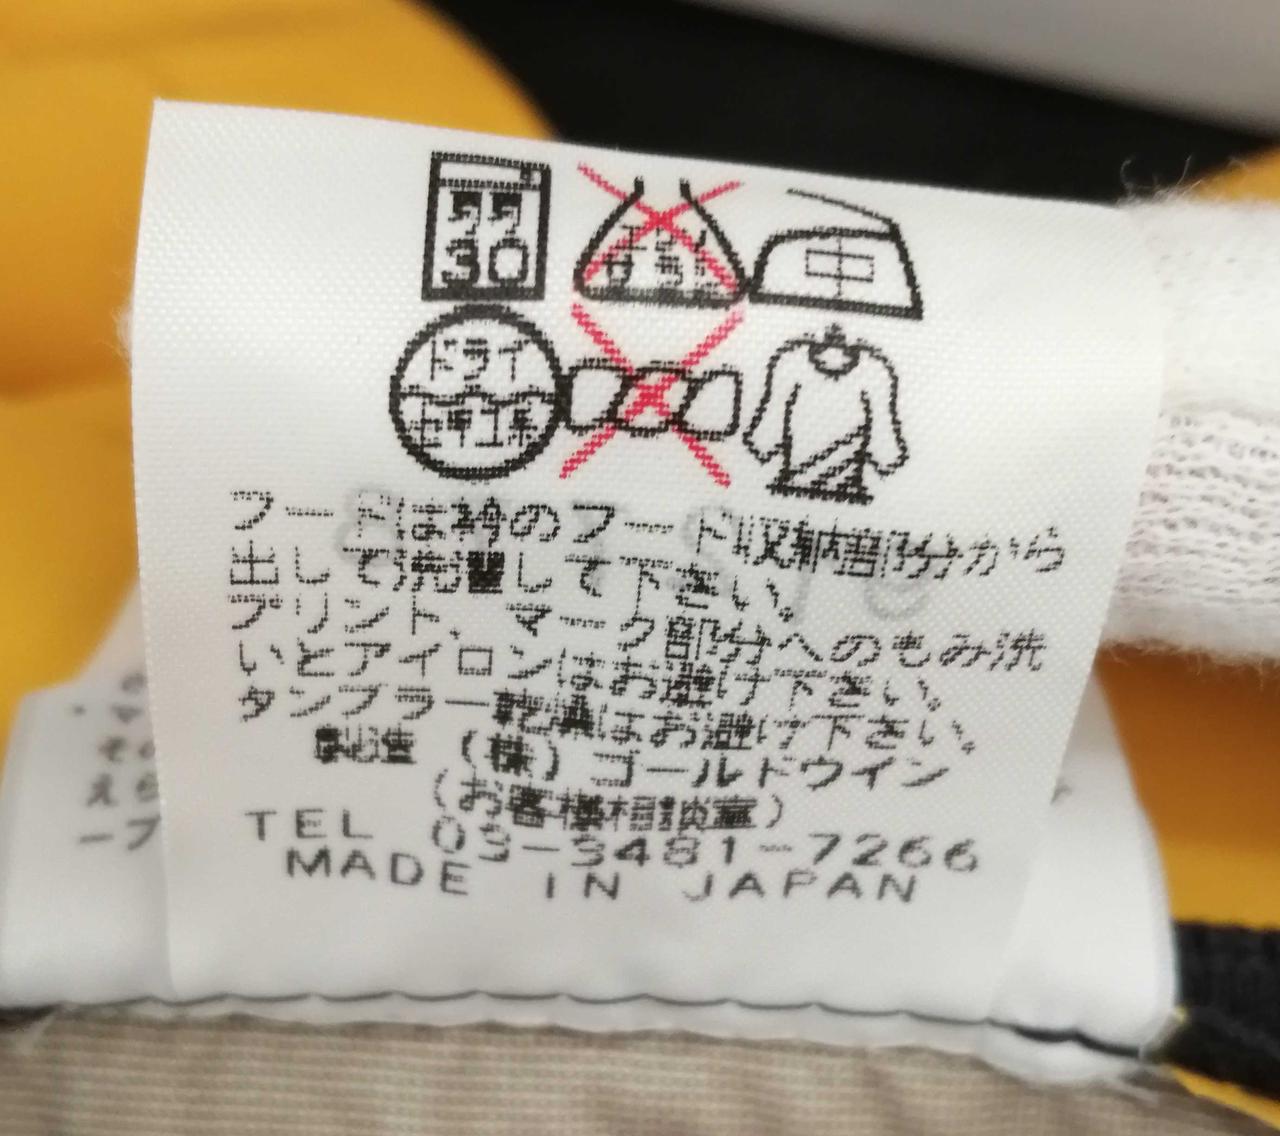 弱
30
エンソ
サラシ
中
ドライ
セキユ系
フードは衿のフード収納部分から
出して洗濯して下さい。
プリント、マーク部分へのもみ洗
いとアイロンはお避け下さい。
タンブラー乾燥はお避け下さい。
製造 (株) ゴールドウイン
(お客様相談室)
TEL 03-3481-7266
MADE IN JAPAN